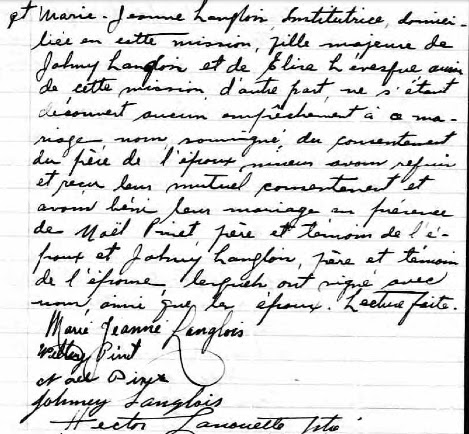 et Marie-Jeanne Langlois Institutrice, domici-
liée en cette mission, fille majeure de
Johny Langlois et de Elise Levesque aussi
de cette mission d'autre part, ne s'étant
découvert aucun empêchement à ce ma-
riage nous, soussigné, du consentement
du père de l'époux mineur avons requis
et reçu leur mutuel consentement et
avons béni leur mariage en présence
de Noël Pinet père et témoin de l'é-
poux et Johny Langlois, père et témoin
de l'épouse, lesquels ont signé avec
nous, ainsi que les époux. Lecture faite.
Marie Jeanne Langlois
Pinet
Noel Pinet
Johnney Langlois
Hector Lanouette Ptre